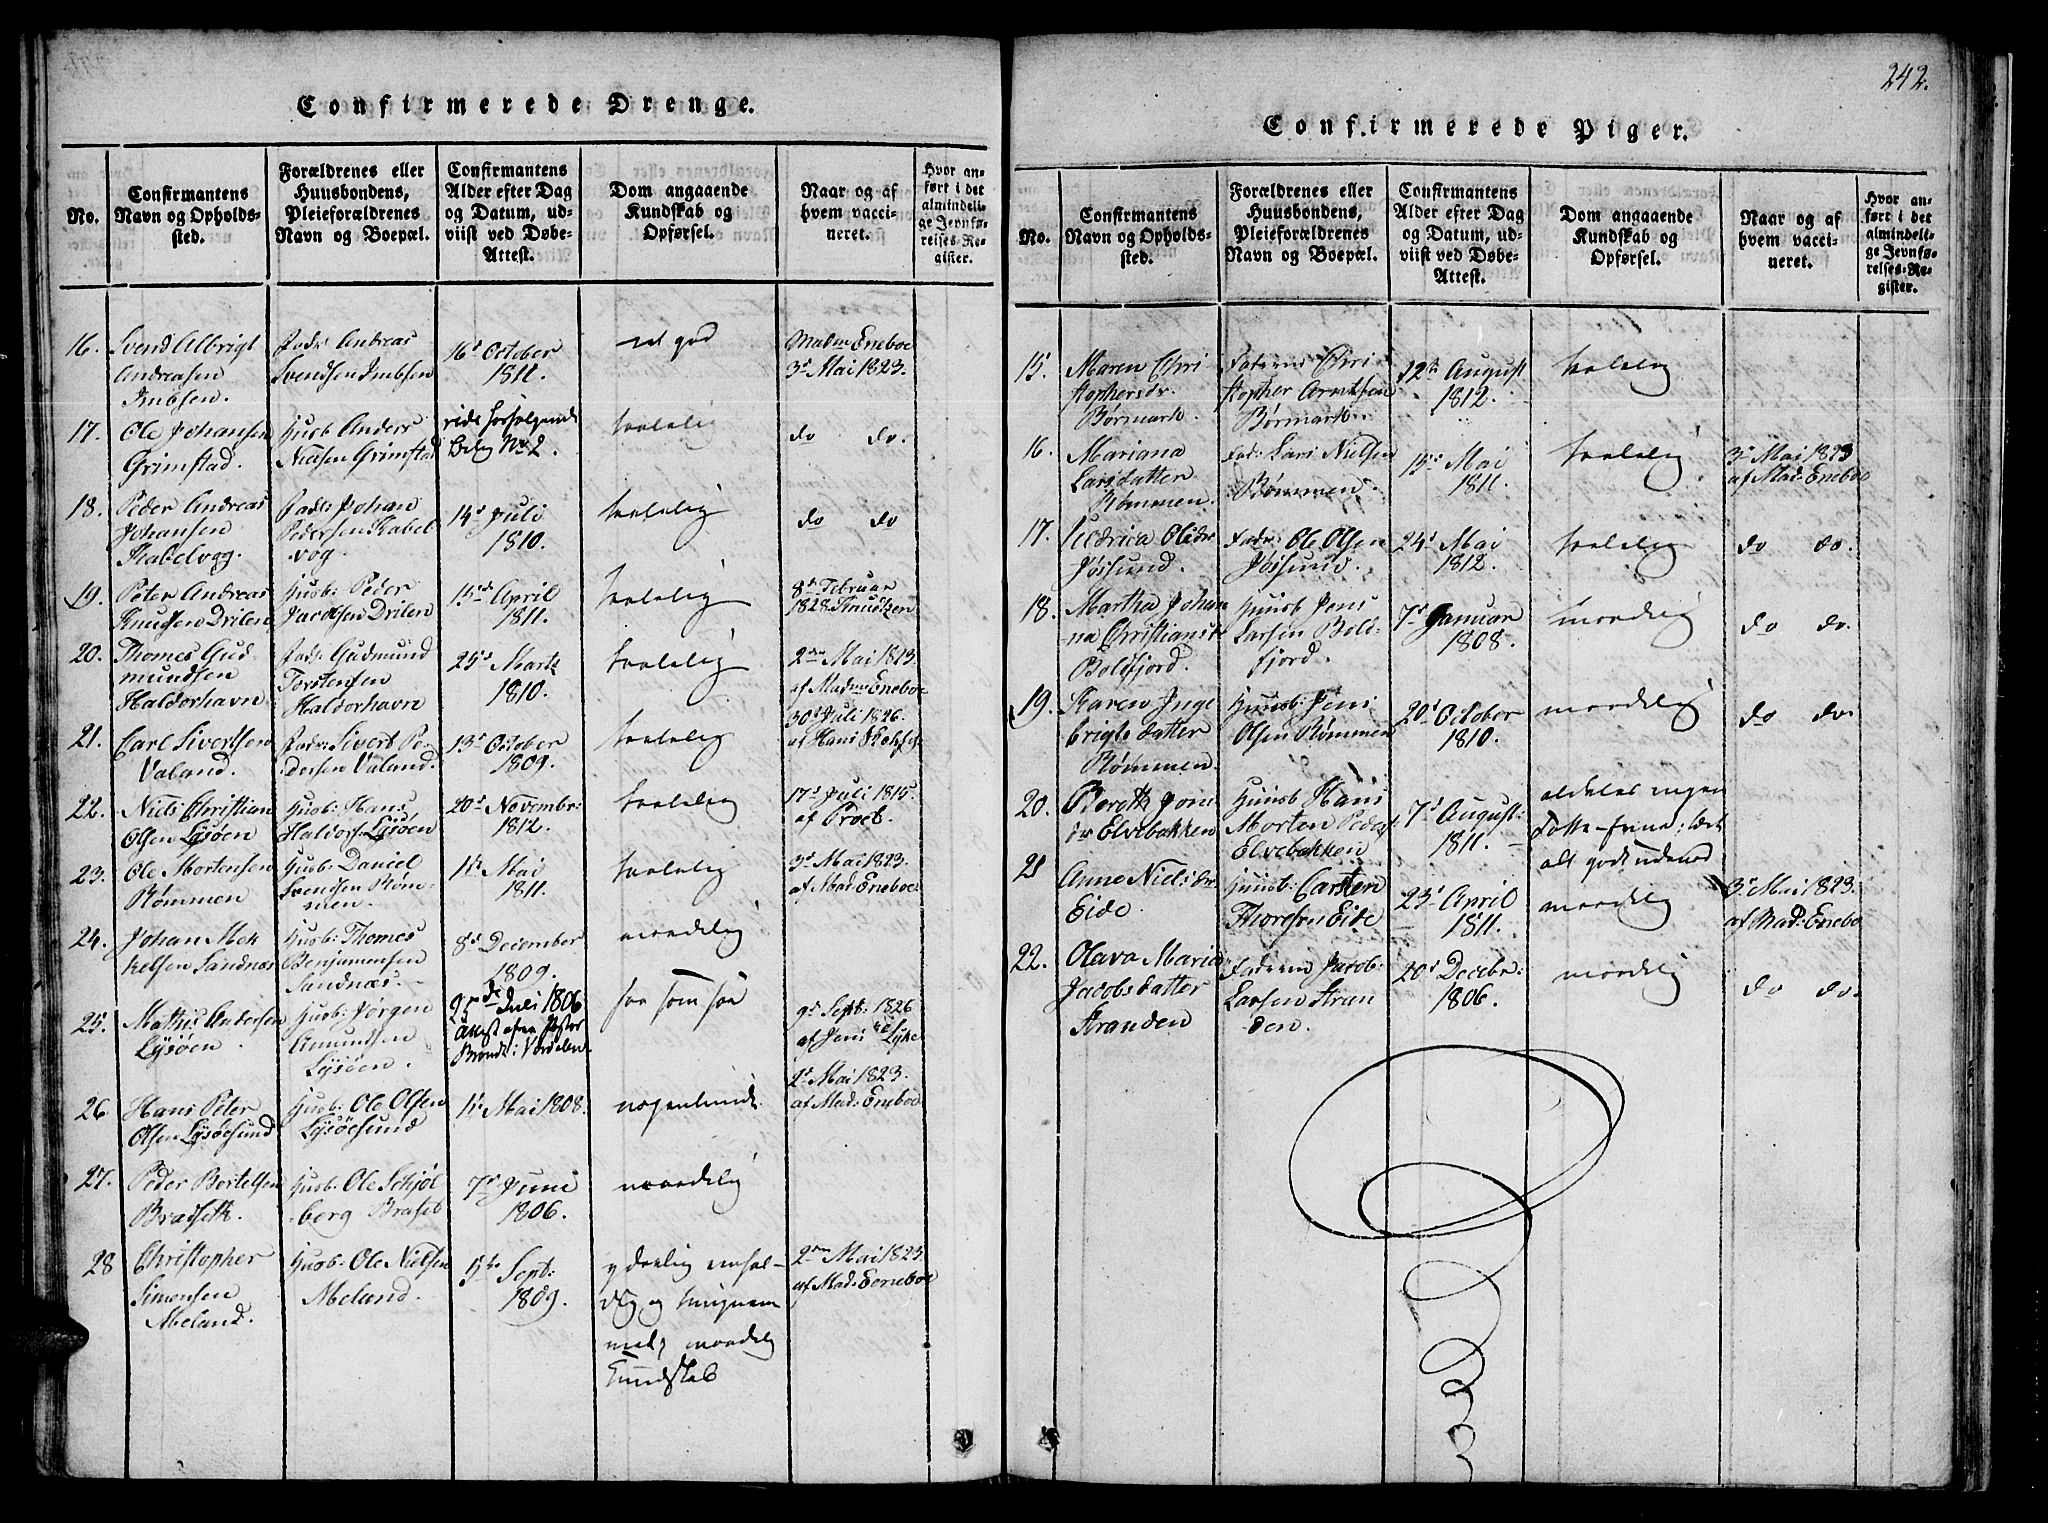 Confirmerede Drenge.
No.
Confirmantens
Navn og Opholds-
sted.
Forældrenes eller
Huusbondens,
Pleieforældrenes
Navn og Boepæl.
Confirmantens
Alder efter Dag
og Datum, ud-
viist ved Døbe-
Attest.
Dom angaaende
Kundskab og
Opførsel.
Naar og af
hvem vacci-
neret.
Hvor an-
ført i det
almindeli-
ge Jevnfø-
relses-Re-
gister.
16.
Svend Albrigt
Andreasen
Fadr Andreas
Svendsen
16d October
1811.
god
Madm Eneboe
3d Mai 1823.
17.
Ole Johansen
Grimstad.
Husb Anders
Nielsen Grimstad
vide
Bilag No 2.
taalelig
do do.
18.
Peder Andreas
Johansen
Kabelvogg.
Fadr: Johan
Pedersen Kabel
vog.
14d Juli
1810.
taalelig
do do
19.
Peter Andreas
Knudsen Drilen
Husb: Peder
Jacobsen Drilen
15d April
1811.
taalelig
8d Februar
1828. Knudtzen
20.
Thomes Gud
mundsen
Haldorhavn
Fadr: Gudmund
Torstensen
Haldorhavn
25d Martz
1810.
taalelig
2den Mai 1823.
af Madm Eneboe
21.
Carl Sivertsen
Valand.
Fadr: Sivert Pe-
dersen Valand.
13d October
1809.
taalelig
30d Juli 1826.
af Hans
22.
Niels Christian
Olsen Lysöen
Husb: Hans
Haldors Lysöen
20d Novembr:
1812.
taalelig
17d Juli 1815.
af
23.
Ole Mortensen
Römmen
Husb: Daniel
Svendsen Röm-
men.
1ste Mai
1811.
taalelig
3d Mai 1823.
af Mad: Eneboe
24.
Johan Mek
kelsen Sandnæs
Husb: Thomes
Benjamensen
Sandnæs.
8d December
1809.
maadelig
25.
Mathis Andersen
Lysöen
Husb: Jörgen
Amundsen
Lysöen.
25de Juli 1806
Attest
Brandt i Værdalen.
saa som saa
9d Sept: 1826
af Jens Lyke
26.
Hans Peter
Olsen Lysöesund
Husb: Ole Olsen
Lysöesund
1ste Mai 1808.
nogenlunde.
2d Mai 1823.
af Mad: Eneboe
27.
Peder Bortelsen
Husb: Ole Schjöl
berg
7d Juni
1806.
maadelig
28
Christopher
Simonsen
Meland.
Husb: Ole Nielsen
Meland.
15de Sept:
1809.
med, maadelig
Kundskab
2den Mai 1823.
af Mad: Eneboe
242.
Confirmerede Piger.
No.
Confirmantens
Navn og Opholds-
sted.
Forældrenes eller
Huusbondens,
Pleieforældrenes
Navn og Boepæl.
Confirmantens
Alder efter Dag
og Datum, ud-
viist ved Døbe-
Attest.
Dom angaaende
Kundskab og
Opførsel.
Naar og af
hvem vacci-
neret.
Hvor an-
ført i det
almindeli-
ge Jevnfø-
relses-Re-
gister.
15.
Maren Chri
stophersdr.
Börmark.
Faderen Chri
stopher Arntsen
Börmark.
12te August
1812.
taalelig
16.
Mariana
Larsdatter
Römmen.
Fad: Lars Nielsen
Römmen.
15d Mai
1811.
taalelig
3d Mai 1823
af Mad: Eneboe
17.
Olsdr
Jössund.
Fadr: Ole Olsen
Jössund.
24d Mai
1812.
taalelig
do do.
18.
Martha Johan
na Christiansdr
Boldfjord.
Huusb Jens
Larsen Bold
fjord.
7d Januar
1808.
maadelig
do do.
19.
Karen Inge
brigtsdatter
Römmen.
Huusb: Jens
Olsen Römmen
20d October
1810.
maadelig
do do.
20.
Jons
dr Elvebakken
Huusb Hans
Morten Peders
Elvebakken
7d August:
1811.
aldeles ingen
21
Anne Nielsdr.
Eide.
Huusb: Carsten
Thoresen Eide
23d April
1811.
maadelig
3d Mai 1823.
af Mad: Eneboe
22.
Olava Maria
Jacobsdatter
Stranden
Faderen Jacob
Larsen Stran
den.
20d Decebr:
1806.
maadelig
do do.